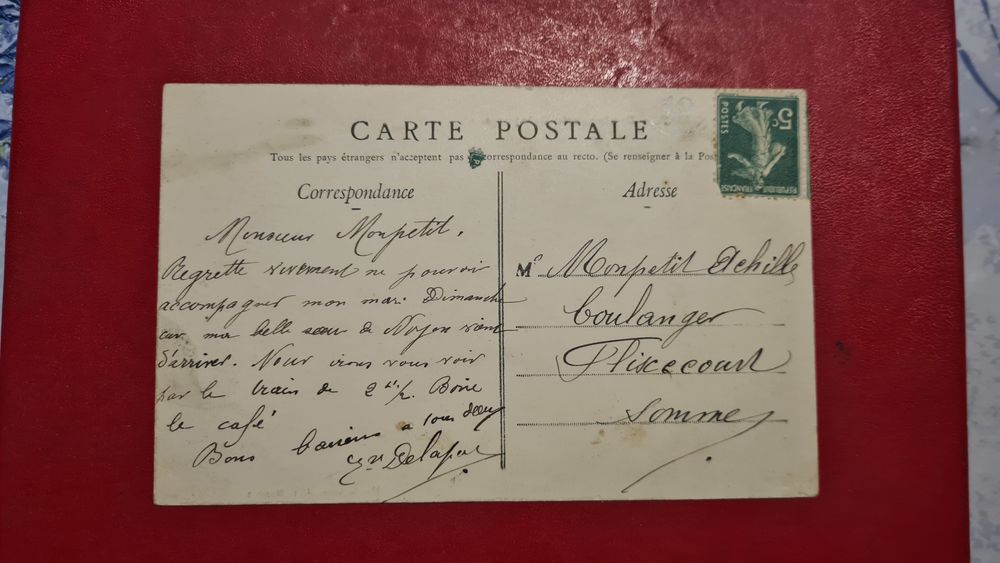 CARTE POSTALE
Tous les pays étrangers n'acceptent pas correspondance au recto. (Se renseigner à la Pos
Correspondance
Adresse
5c
POSTES
REPUBLIQUE FRANÇAISE
Monsieur Monpetit.
Regrette vivement ne pouvoir
accompagner mon mari Dimanche
car ma belle sœur de Noyon vient
d'arriver. Nous irons vous voir
par le train de 2 Boire
le café
Bons baisers a tous deux
Delafos
Mr Monpetit Achille
boulanger
Flixecourt
Somme